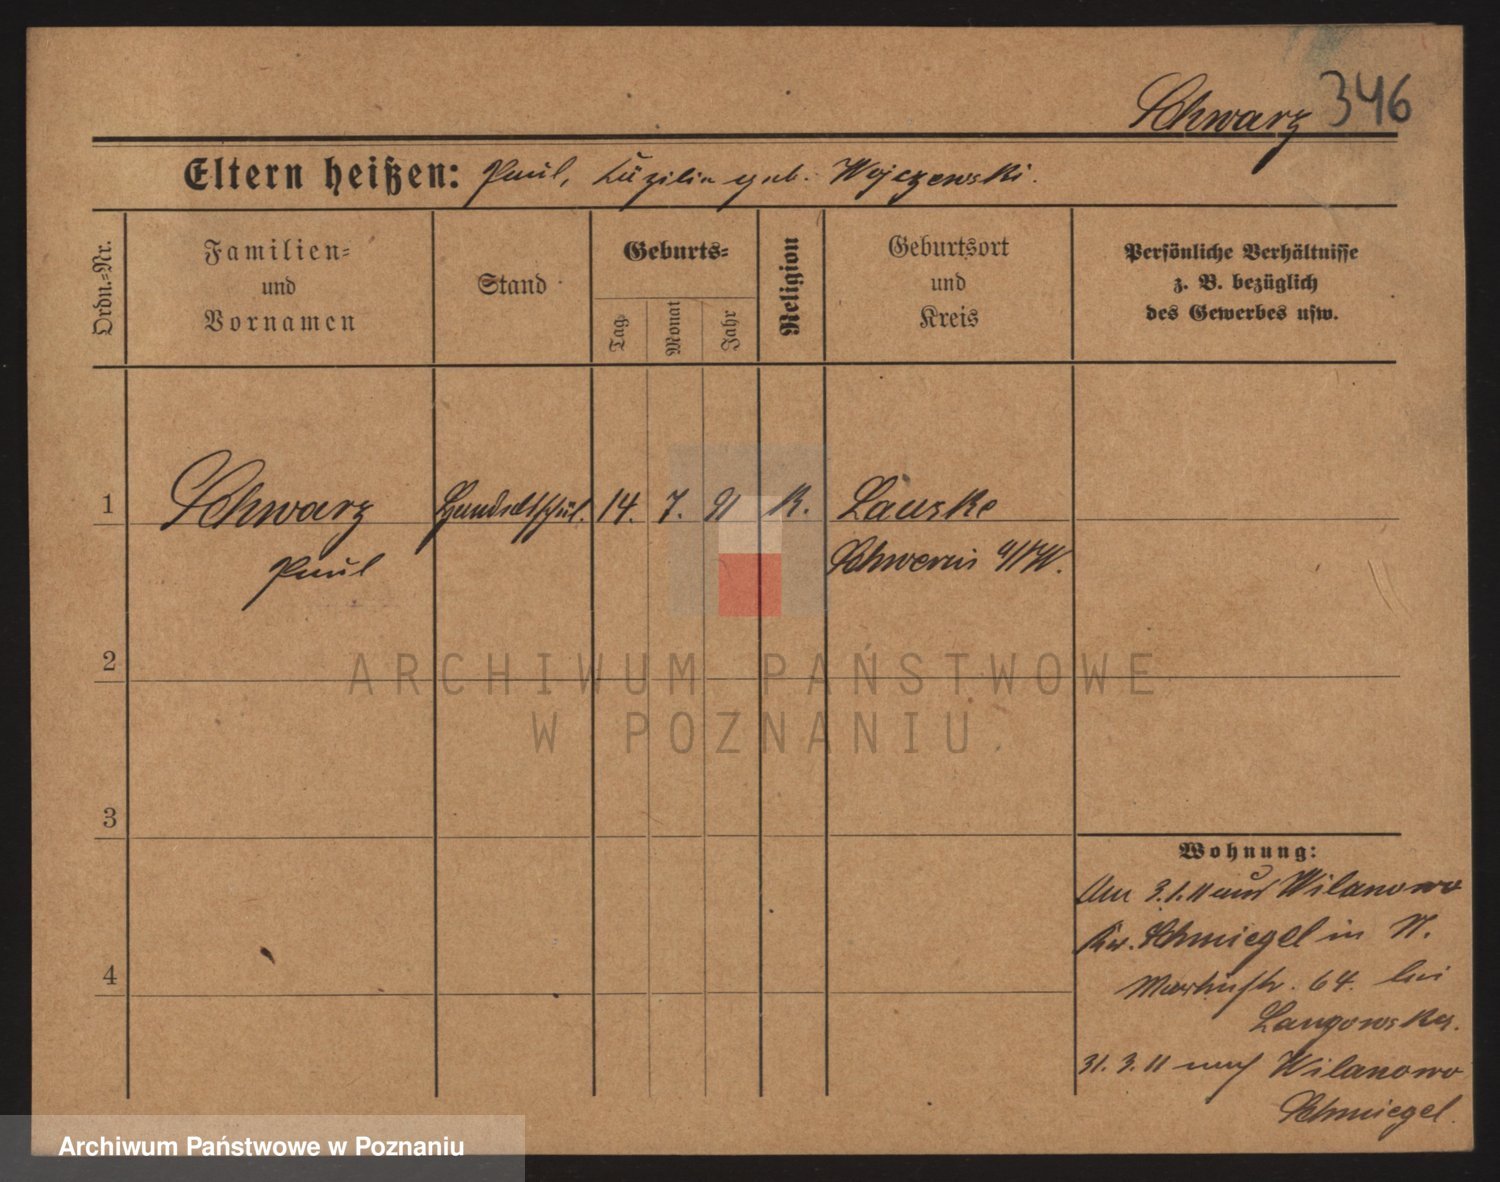 Schwarz 346
Eltern heißen: Paul, Cäzilia geb. Wojczewski.
Ordn.-Nr.
Familien-
und
Vornamen
Stand
Geburts-
Tag
Monat
Jahr
Religion
Geburtsort
und
Kreis
Persönliche Verhältnisse
z. B. bezüglich
des Gewerbes usw.
1 Schwarz Handelsschül. 14. 7. 91 K. Lauske
Paul Schwerin a/W.
2
3
4
Wohnung:
Am 3.1.11 aus Wilanowo
Kr. Schmiegel in
Martinstr. 64. bei
31. 3. 11 nach Wilanowo
Schmiegel.
ARCHIWUM PAŃSTWOWE
W POZNANIU.
Archiwum Państwowe w Poznaniu